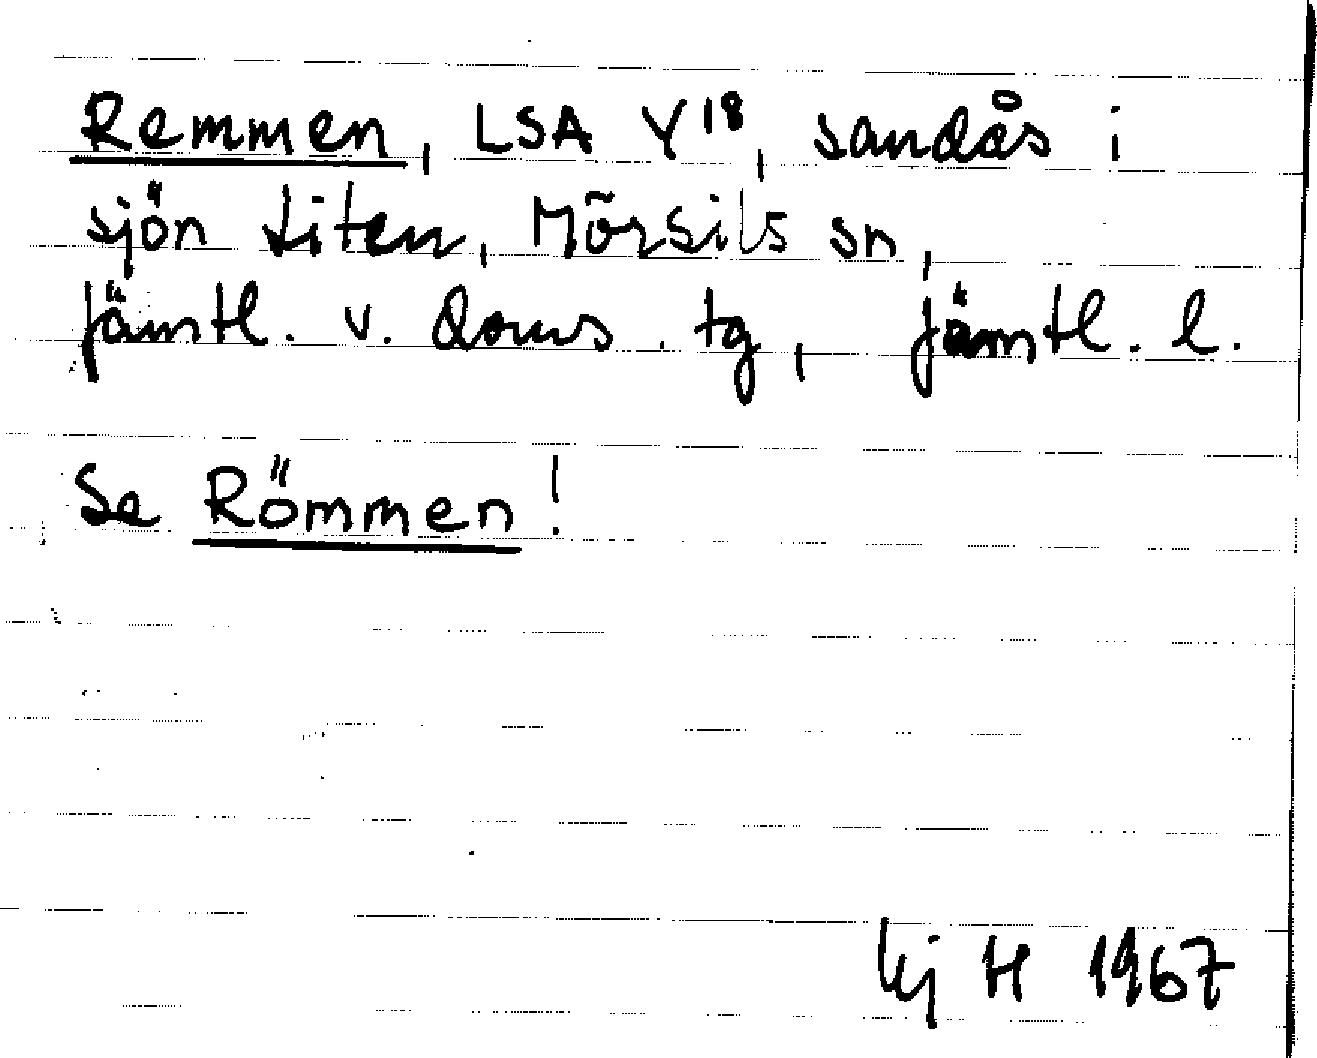 Remmen, LSA Y18, sandås i
sjön Liten, Mörsils sn,
Jämtl. v. doms. tg, Jämtl. l.
Se Römmen!
H 1967